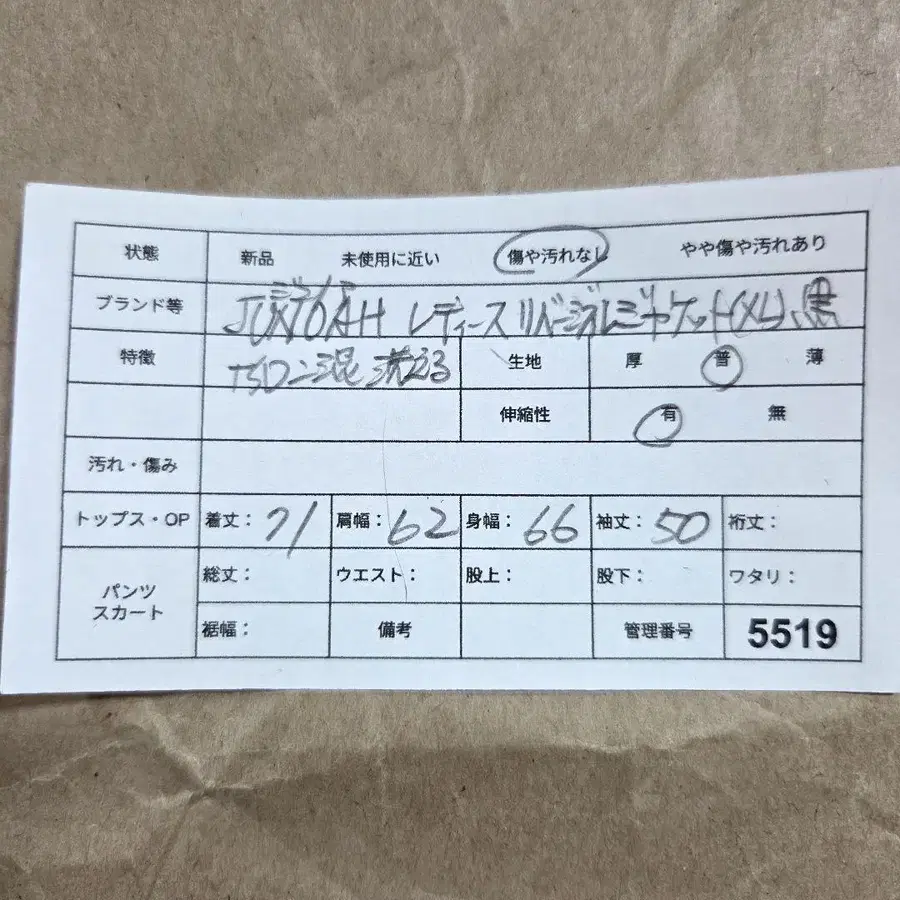 状態 新品 未使用に近い 傷や汚れなし やや傷や汚れあり
ブランド等 レディース リバーシブルジャケット(XL) 黒
特徴 混 洗える 生地 厚 普 薄
伸縮性 有 無
汚れ・傷み
トップス・OP 着丈: 71 肩幅: 62 身幅: 66 袖丈: 50 裄丈:
パンツ スカート 総丈: ウエスト: 股上: 股下: ワタリ:
裾幅: 備考 管理番号 5519